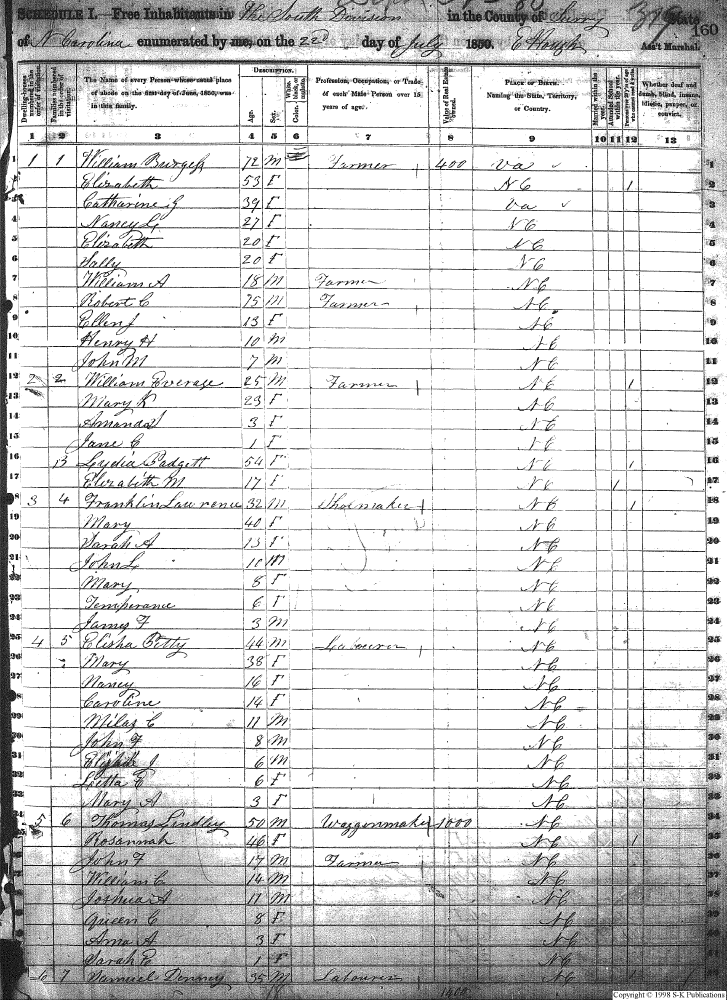 SCHEDULE I.—Free Inhabitants in The South Division in the County of Surry State
of N Carolina enumerated by me, on the 22nd day of July 1850. E Hough Ass't Marshal.
319
160
Dwelling-houses numbered in the order of visitation.
Families numbered in the order of visitation.
The Name of every Person whose usual place of abode on the first day of June, 1850, was in this family.
Description.
Age.
Sex.
Color. White, black, or mulatto.
Profession, Occupation, or Trade of each Male Person over 15 years of age.
Value of Real Estate owned.
Place of Birth. Naming the State, Territory, or Country.
Married within the year.
Attended School within the year.
Persons over 20 y'rs of age who cannot read & write.
Whether deaf and dumb, blind, insane, idiotic, pauper, or convict.
1 2 3 4 5 6 7 8 9 10 11 12 13
1 1 1 William Burgess 72 M Farmer 400 Va 1
2 Elizabeth 53 F N C 1 2
Catharine G 39 F Va
4 Nancy L 21 F N C 4
5 Elizabeth 20 F N C 5
6 Sally 20 F N C 6
7 William A 18 M Farmer N C 7
8 Robert C 15 M Farmer N C 8
9 Ellen J 13 F N C 9
10 Henry H 10 M N C 10
11 John M 7 M N C 11
12 2 2 William Everage 25 M Farmer N C 1 12
13 Mary K 23 F N C 13
14 Amanda 3 F N C 14
15 Jane C 1 F N C 15
16 3 Lydia Padgett 54 F N C 1 16
17 Elizabeth M 17 F N C 1 17
18 3 4 Franklin Lawrence 32 M Shoemaker N C 1 18
19 Mary 40 F N C 19
20 Sarah A 13 F N C 20
21 John L 10 M N C 21
22 Mary 8 F N C 22
23 Temperance 6 F N C 23
24 James F 3 M N C 24
25 4 5 Elisha Petty 44 M Labourer N C 25
26 Mary 38 F N C 26
27 Nancy 16 F N C 27
28 Caroline 14 F N C 28
29 Milas C 11 M N C 29
30 John F 8 M N C 30
31 Elisha J 6 M N C 31
32 Letta E 6 F N C 32
33 Mary A 3 F N C 33
34 5 6 Thomas Lindley 50 M Waggonmaker 1000 N C 34
35 Rosannah 46 F N C 1 35
John F 17 M Farmer N C
William C 14 M N C
Joshua A 11 M N C
Queen C 8 F N C
Ama A 3 F N C
Sarah E 1 F N C
6 7 Samuel Denney 35 M Labourer N C 1
1400
Copyright © 1998 S-K Publications